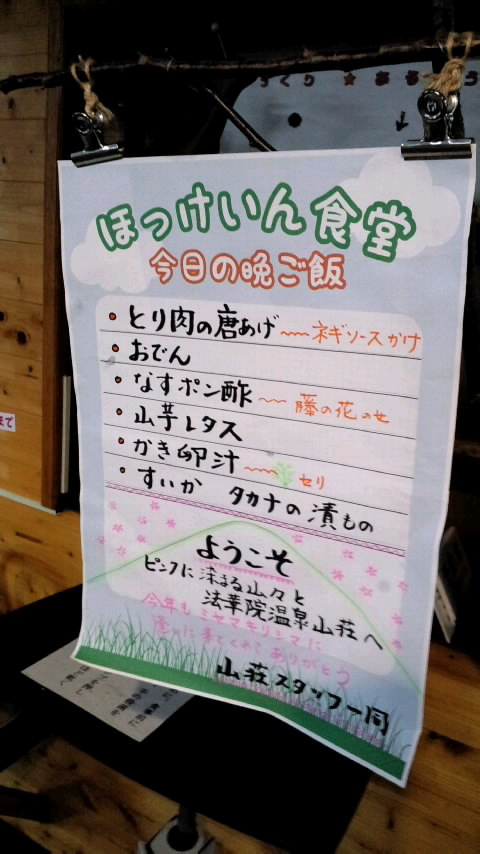 ほっけいん食堂
今日の晩ご飯
・とり肉の唐あげ〜〜ネギソースかけ
・おでん
・なすポン酢〜 藤の花のせ
・山芋レタス
・かき卵汁〜〜 セリ
・すいか タカナの漬もの
ようこそ
ピンクに染まる山々と
法華院温泉山荘へ
今年もミヤマキリシマに
逢いに来てくれてありがとう
山荘スタッフ一同
まで